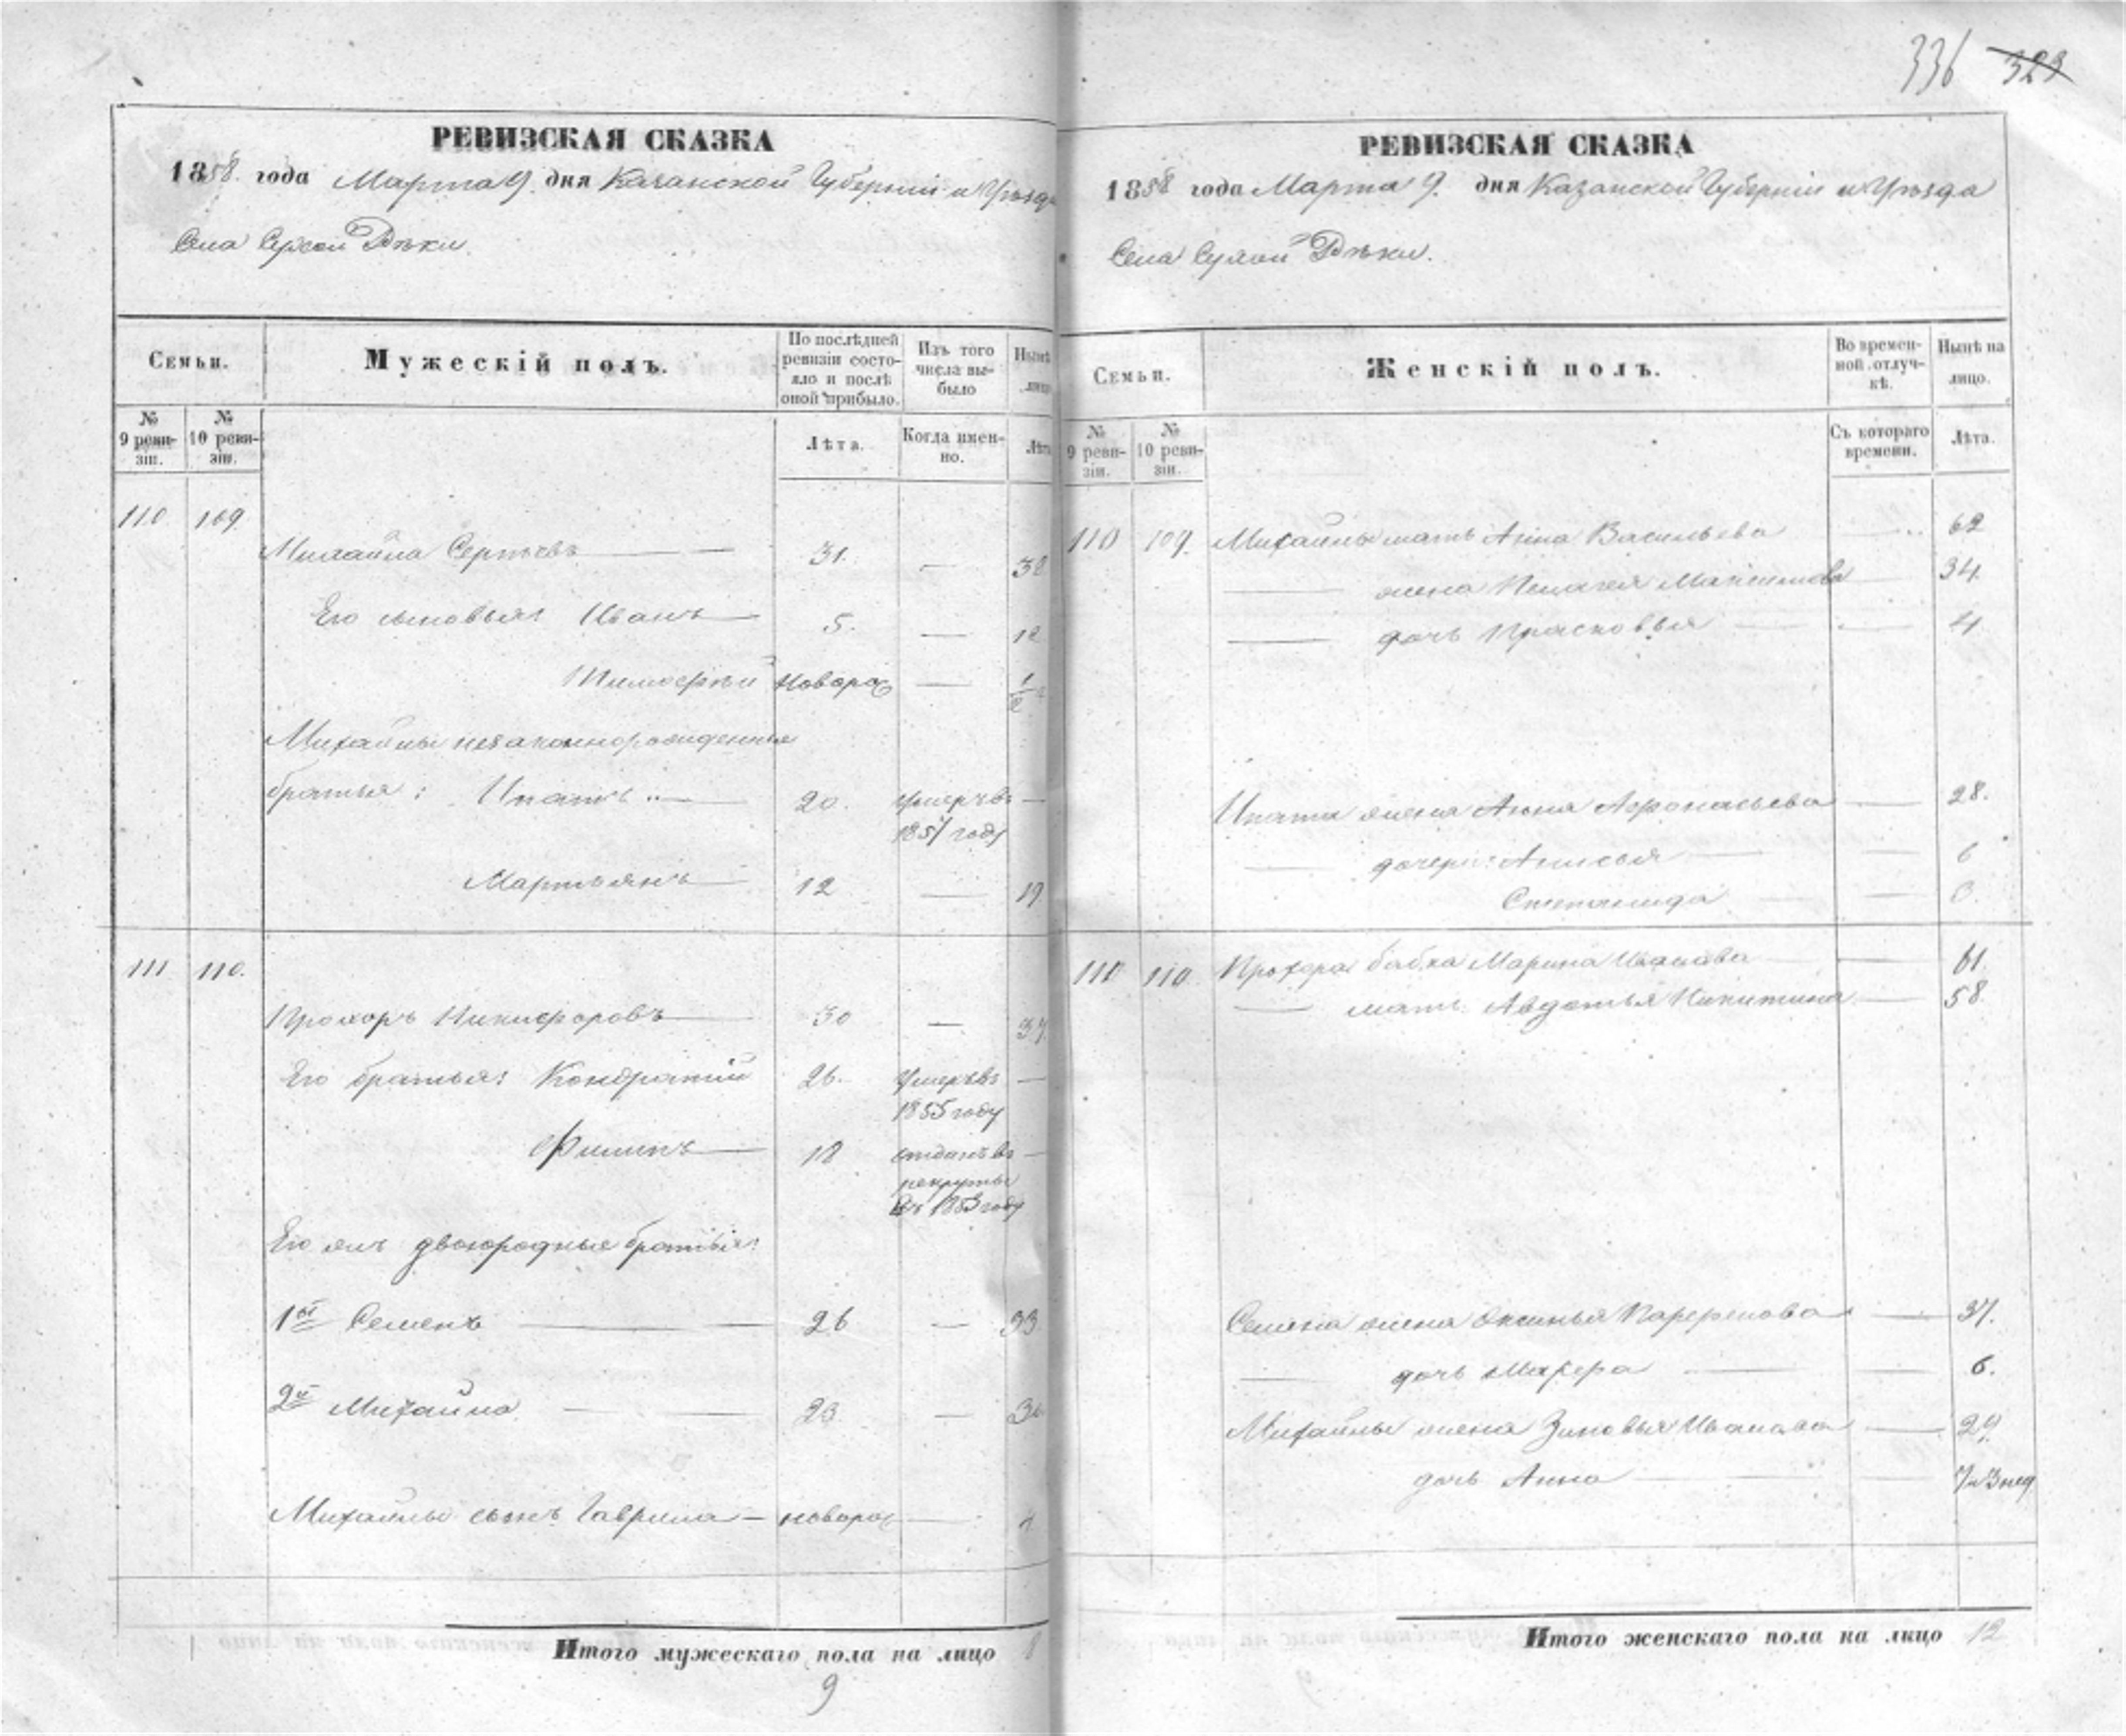 336 323
РЕВИЗСКАЯ СКАЗКА
1858. года Марта 9. дня Казанской Губерніи и Уѣзда
Села Сухой Рѣки.
Семьи.
Мужескій полъ.
По послѣдней ревизіи состо-
яло и послѣ оной прибыло.
Изъ того числа вы-
было
Нынѣ
лицо
№ 9 реви-
зіи.
№ 10 реви-
зіи.
Лѣта.
Когда имен-
но.
Лѣта
110. 109.
Михайла Сергѣевъ 31. — 38
Его сыновья: Иванъ 5. — 12
Тимофѣй новорож — 1/2
Михайлы незаконнорожденные
братья: Ипатъ 20. умеръ въ —
1857 году
Мартьянъ 12 — 19
111 110.
Прохоръ Никифоровъ 30 — 37.
Его братья: Кондратій 26. умеръ въ —
1855 году
Филипъ 18 отданъ въ —
рекруты
въ 1853 году
Его жъ двоюродные братья:
1ый Семенъ 26 — 33
2й Михайла 23. — 30
Михайлы сынъ Гаврила — новорож —
Итого мужескаго пола на лицо 8
9
РЕВИЗСКАЯ СКАЗКА
1858 года Марта 9. дня Казанской Губерніи и Уѣзда
Села Сухой Рѣки.
Семьи.
Женскій полъ.
Во времен-
ной отлуч-
кѣ.
Нынѣ на
лицо.
№ 9 реви-
зіи.
№ 10 реви-
зіи.
Съ котораго
времени.
Лѣта.
110 109. Михайлы мать Анна Васильева — 62
— жена Пелагея Максимова 34.
— дочь Прасковья — 4
Ипата жена Анна Афонасьева — 28.
— дочери: Анисья — 6
Степанида —
110 110 Прохора бабка Марина Иванова — 61.
— мать Авдотья Никитина — 58
Семена жена Аксинья Парфенова — 37.
— дочь Макера — 6.
Михайлы жена Зиновья Иванова — 29.
дочь Анна — 7 и 3 нед
Итого женскаго пола на лицо 12